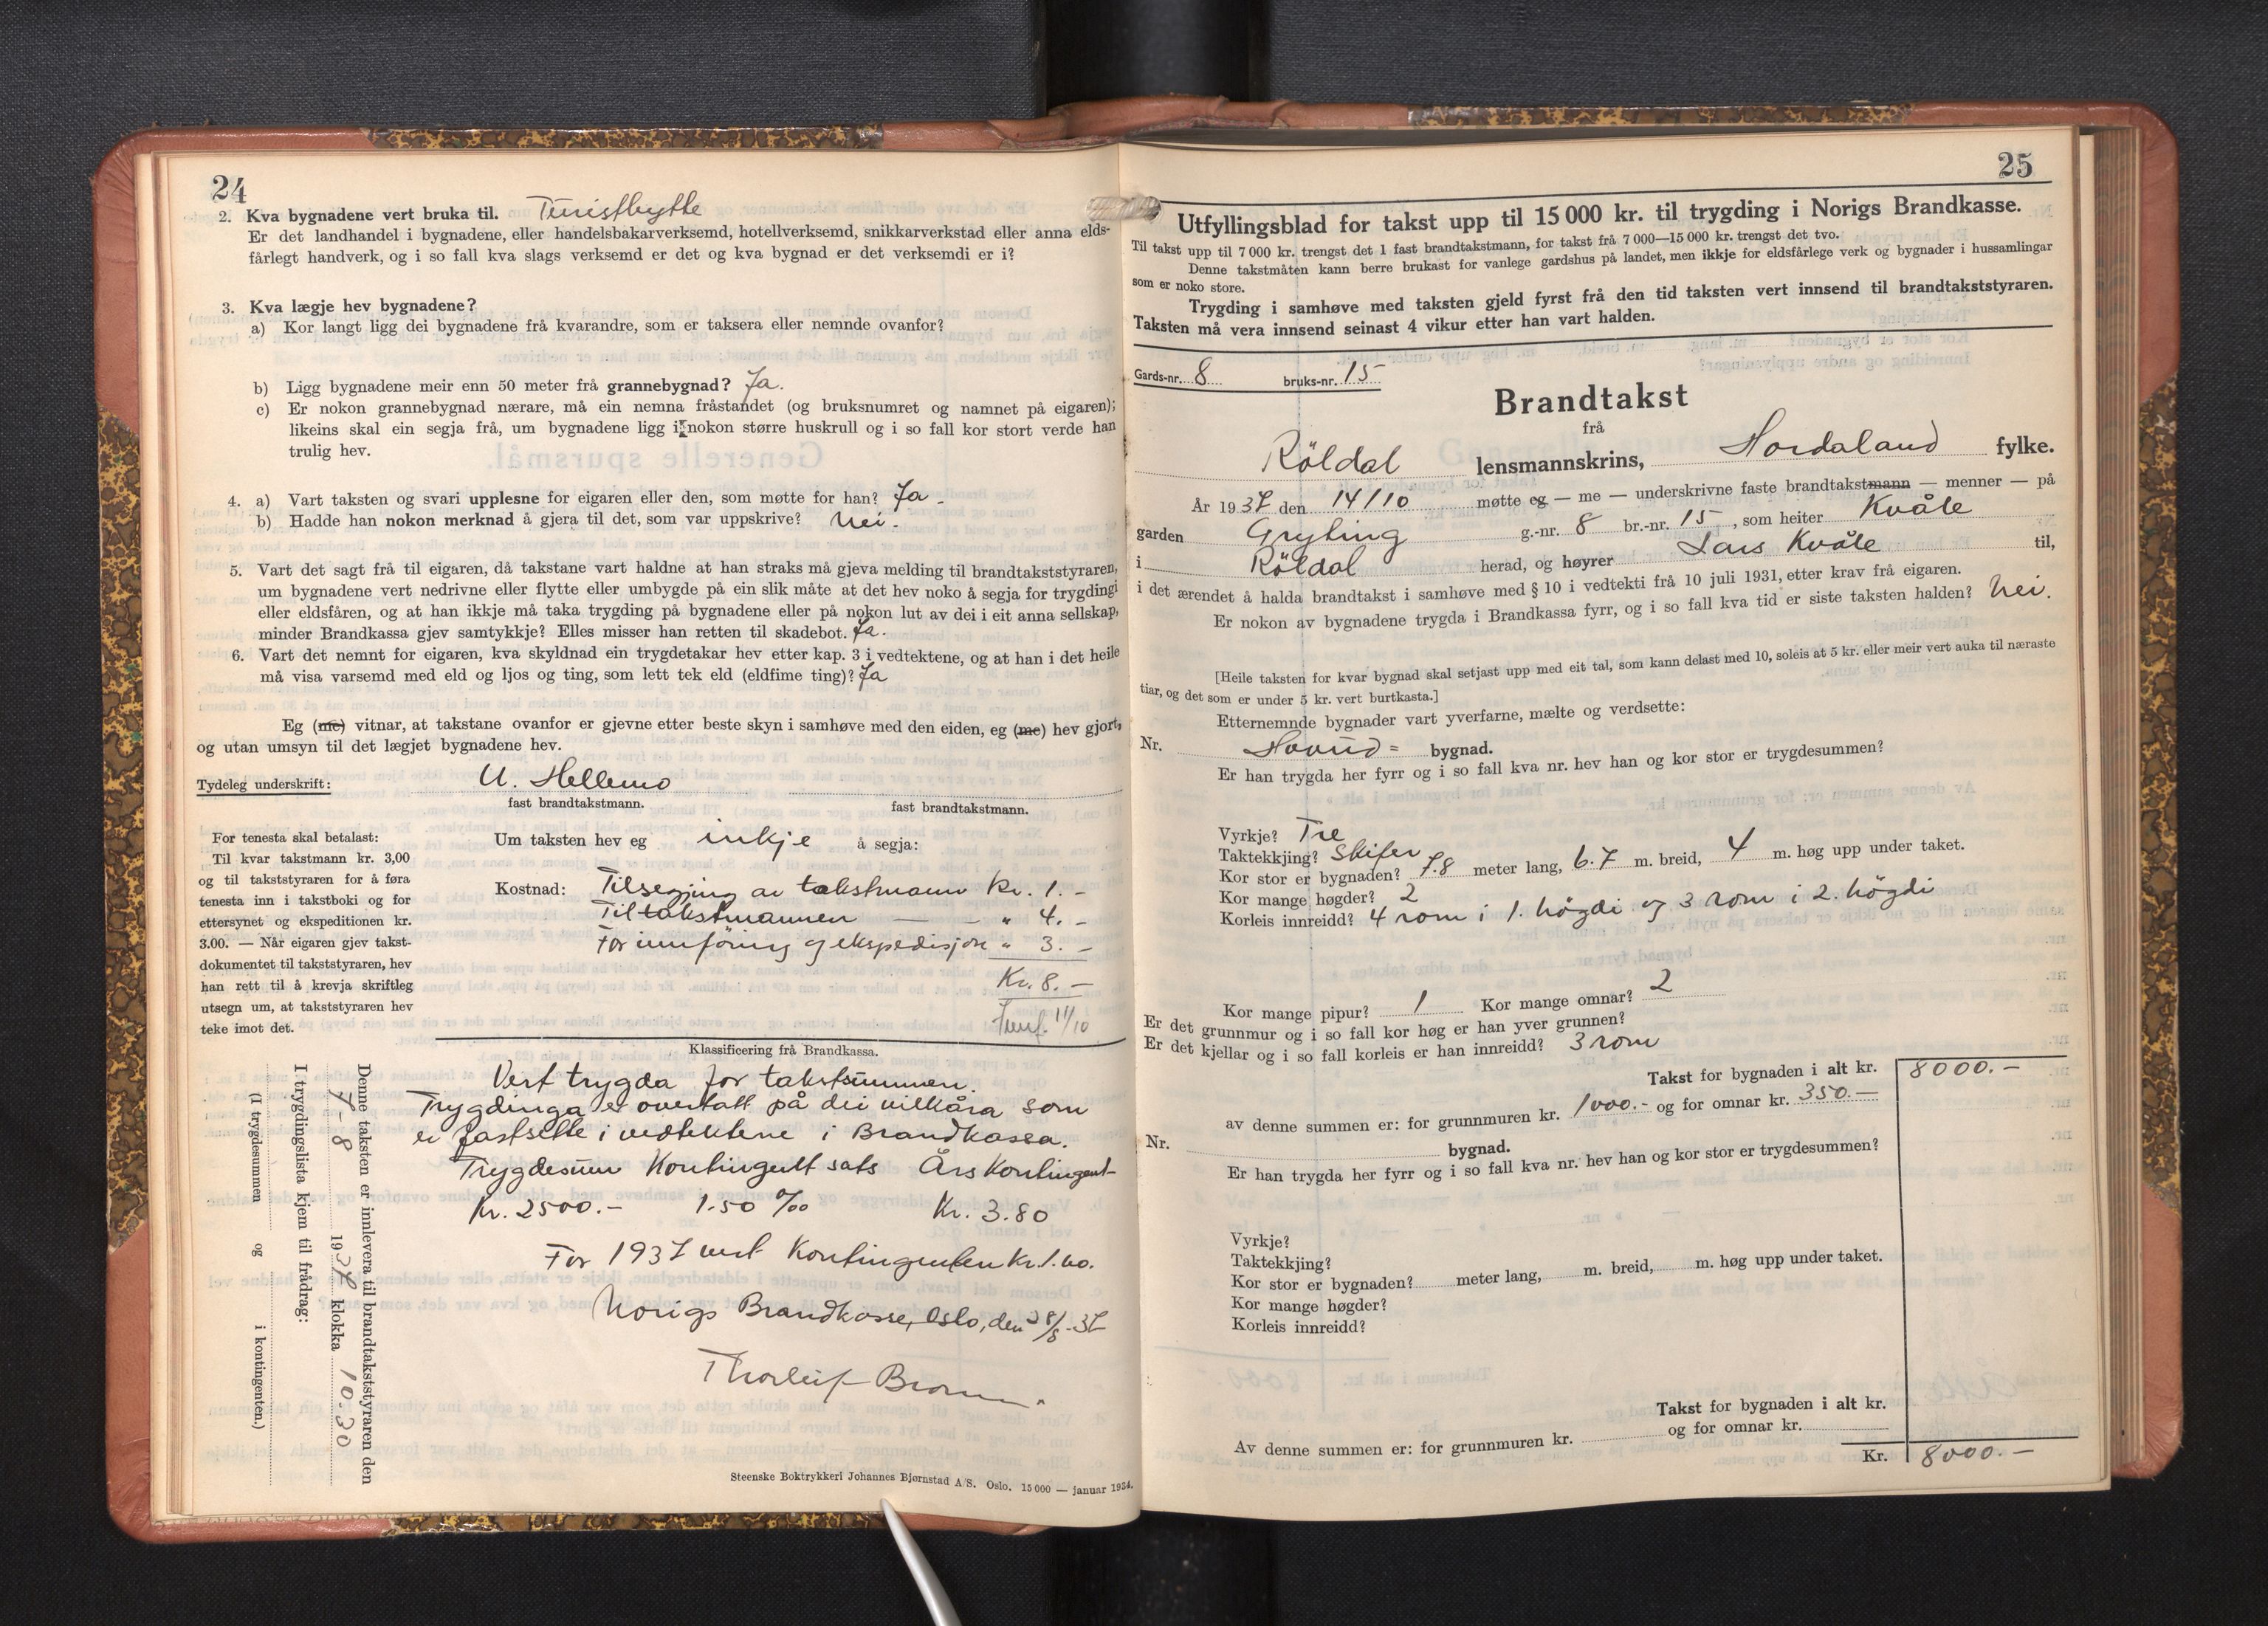 24
2. Kva bygnadene vert bruka til. Turisthytte
Er det landhandel i bygnadene, eller handelsbakarverksemd, hotellverksemd, snikkarverkstad eller anna elds-
fårlegt handverk, og i so fall kva slags verksemd er det og kva bygnad er det verksemdi er i?
3. Kva lægje hev bygnadene?
a) Kor langt ligg dei bygnadene frå kvarandre, som er taksera eller nemnde ovanfor?
b) Ligg bygnadene meir enn 50 meter frå grannebygnad? Ja.
c) Er nokon grannebygnad nærare, må ein nemna fråstandet (og bruksnumret og namnet på eigaren);
likeins skal ein segja frå, um bygnadene ligg i nokon større huskrull og i so fall kor stort verde han
trulig hev.
4. a) Vart taksten og svari upplesne for eigaren eller den, som møtte for han? Ja -
b) Hadde han nokon merknad å gjera til det, som var uppskrive? Nei.
5. Vart det sagt frå til eigaren, då takstane vart haldne at han straks må gjeva melding til brandtakststyraren,
um bygnadene vert nedrivne eller flytte eller umbygde på ein slik måte at det hev noko å segja for trygdingi
eller eldsfåren, og at han ikkje må taka trygding på bygnadene eller på nokon lut av dei i eit anna sellskap,
minder Brandkassa gjev samtykkje? Elles misser han retten til skadebot. Ja.
6. Vart det nemnt for eigaren, kva skyldnad ein trygdetakar hev etter kap. 3 i vedtektene, og at han i det heile
må visa varsemd med eld og ljos og ting, som lett tek eld (eldfime ting)? Ja
Eg (me) vitnar, at takstane ovanfor er gjevne etter beste skyn i samhøve med den eiden, eg (me) hev gjort,
og utan umsyn til det lægjet bygnadene hev.
Tydeleg underskrift: U. Hellemo
fast brandtakstmann. fast brandtakstmann.
For tenesta skal betalast:
Til kvar takstmann kr. 3,00
og til takststyraren for å føra
tenesta inn i takstboki og for
ettersynet og ekspeditionen kr.
3.00. — Når eigaren gjev takst-
dokumentet til takststyraren, hev
han rett til å krevja skriftleg
utsegn um, at takststyraren hev
teke imot det.
Um taksten hev eg inkje å segja:
Kostnad: Tilsegjing av takstmann Kr. 1. -
Til takstmannen — - " 4. -
For innföring og ekspedisjon " 3. -
Kr. 8. —
11/10
Klassificering frå Brandkassa.
Vert trygda for takstsummen.
Trygdinga er overtatt på dei vilkåra som
er fastsette i vedtektene i Brandkassa.
Trygdesum Kontingentsats Års Kontingent
Kr. 2500.- 1.50 ‰ Kr. 3.80
For 1937 vert Kontingenten Kr. 1.60.
Norigs Brandkasse, Oslo, den 28/8-37
Thorleif
Denne taksten er innlevera til brandtakststyraren den
7 - 8 1937 klokka 10.30
I trygdingslista kjem til frådrag:
(I trygdesummen og i kontingenten.)
Steenske Boktrykkeri Johannes Bjørnstad A/S. Oslo. 15 000 — januar 1934.
25
Utfyllingsblad for takst upp til 15 000 kr. til trygding i Norigs Brandkasse.
Til takst upp til 7 000 kr. trengst det 1 fast brandtakstmann, for takst frå 7 000—15 000 kr. trengst det tvo.
Denne takstmåten kann berre brukast for vanlege gardshus på landet, men ikkje for eldsfårlege verk og bygnader i hussamlingar
som er noko store.
Trygding i samhøve med taksten gjeld fyrst frå den tid taksten vert innsend til brandtakststyraren.
Taksten må vera innsend seinast 4 vikur etter han vart halden.
Gards-nr. 8 bruks-nr. 15
Brandtakst
frå
Röldal lensmannskrins, Hordaland fylke.
År 1937 den 14/10 møtte eg — me — underskrivne faste brandtakstmann — menner — på
garden Gryting g.-nr. 8 br.-nr. 15, som heiter Kvåle
i Röldal herad, og høyrer Lars Kvåle til,
i det ærendet å halda brandtakst i samhøve med § 10 i vedtekti frå 10 juli 1931, etter krav frå eigaren.
Er nokon av bygnadene trygda i Brandkassa fyrr, og i so fall kva tid er siste taksten halden? Nei.
[Heile taksten for kvar bygnad skal setjast upp med eit tal, som kann delast med 10, soleis at 5 kr. eller meir vert auka til næraste
tiar, og det som er under 5 kr. vert burtkasta.]
Etternemnde bygnader vart yverfarne, mælte og verdsette:
Nr. Hovud= bygnad.
Er han trygda her fyrr og i so fall kva nr. hev han og kor stor er trygdesummen?
Vyrkje? Tre
Taktekkjing? Skifer
Kor stor er bygnaden? 7.8 meter lang, 6.7 m. breid, 4 m. høg upp under taket.
Kor mange høgder? 2
Korleis innreidd? 4 rom i 1. högdi og 3 rom i 2. högdi
Kor mange pipur? 1 Kor mange omnar? 2
Er det grunnmur og i so fall kor høg er han yver grunnen?
Er det kjellar og i so fall korleis er han innreidd? 3 rom
Takst for bygnaden i alt kr. 8000.—
av denne summen er: for grunnmuren kr. 1000.- og for omnar kr. 350.—
Nr. bygnad.
Er han trygda her fyrr og i so fall kva nr. hev han og kor stor er trygdesummen?
Vyrkje?
Taktekkjing?
Kor stor er bygnaden? meter lang, m. breid, m. høg upp under taket.
Kor mange høgder?
Korleis innreidd?
Takst for bygnaden i alt kr.
Av denne summen er: for grunnmuren kr. og for omnar kr.
Kr. 8000.—